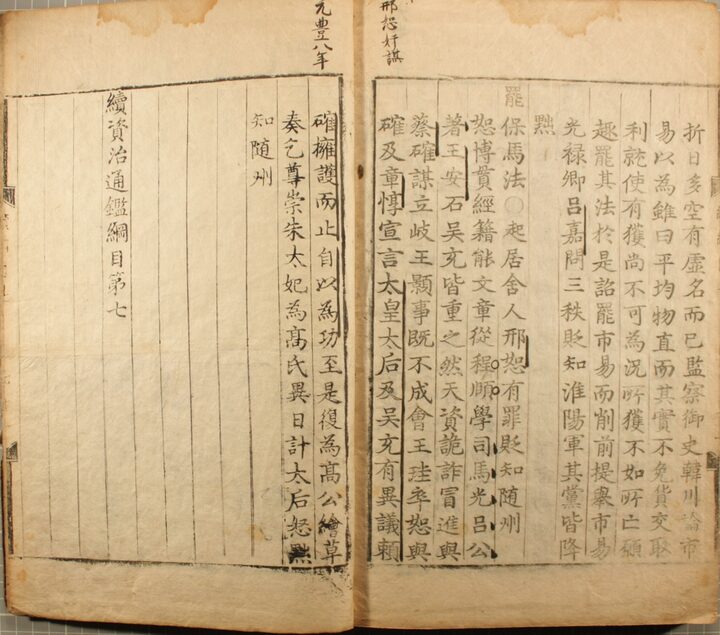 邢恕奸謀
折日多空有虛名而已監察御史韓川論市
易以為雖曰平均物直而其實不免貨交取
利就使有獲尚不可為況所獲不如所亡願
趣罷其法於是詔罷市易而削前提舉市易
光禄卿呂嘉問三秩貶知淮陽軍其黨皆降
黜
罷保馬法○起居舍人邢恕有罪貶知隨州
恕博貫經籍能文章從程順學司馬光呂公
著王安石吳充皆重之然天資詭詐冒進與
蔡確謀立岐王顥事既不成會王珪卒恕與
確及章惇宣言太皇太后及吳充有異議頼
元豊八年
確擁護而止自以為功至是復為高公繪草
奏乞尊崇朱太妃為高氏異日計太后怒黜
知隨州
續資治通鑑綱目第七